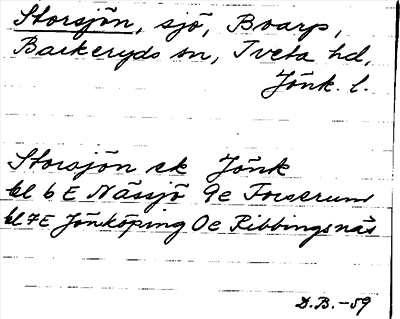 Storsjön, sjö, Boarp,
Barkeryds sn, Tveta hd,
Jönk. l.
Storsjön ek Jönk
bl 6 E Nässjö 9e Forserum
bl 7E Jönköping 0e Ribbingsnäs
D.B. -59